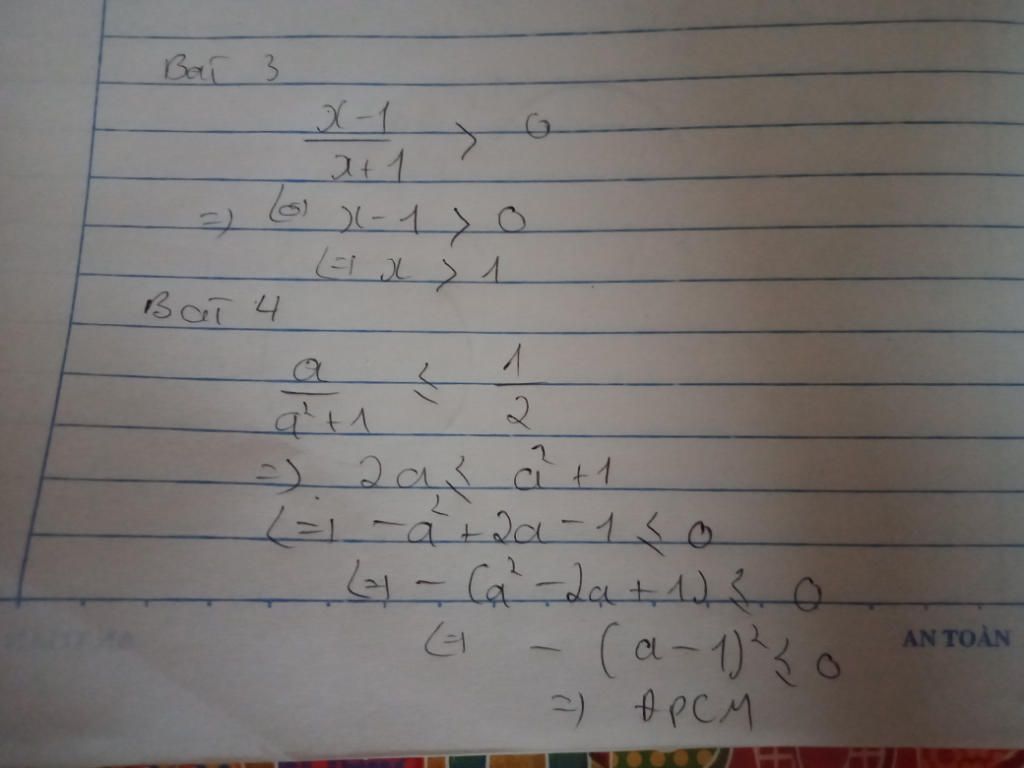 Bai 3
x-1 / x+1 > 0
=> (=) x-1 > 0
(=) x > 1
Bai 4
a / a²+1 ≤ 1 / 2
=> 2a ≤ a²+1
(=) -a²+2a-1 ≤ 0
(=) -(a²-2a+1) ≤ 0
(=) -(a-1)² ≤ 0
=> ĐPCM
AN TOÀN